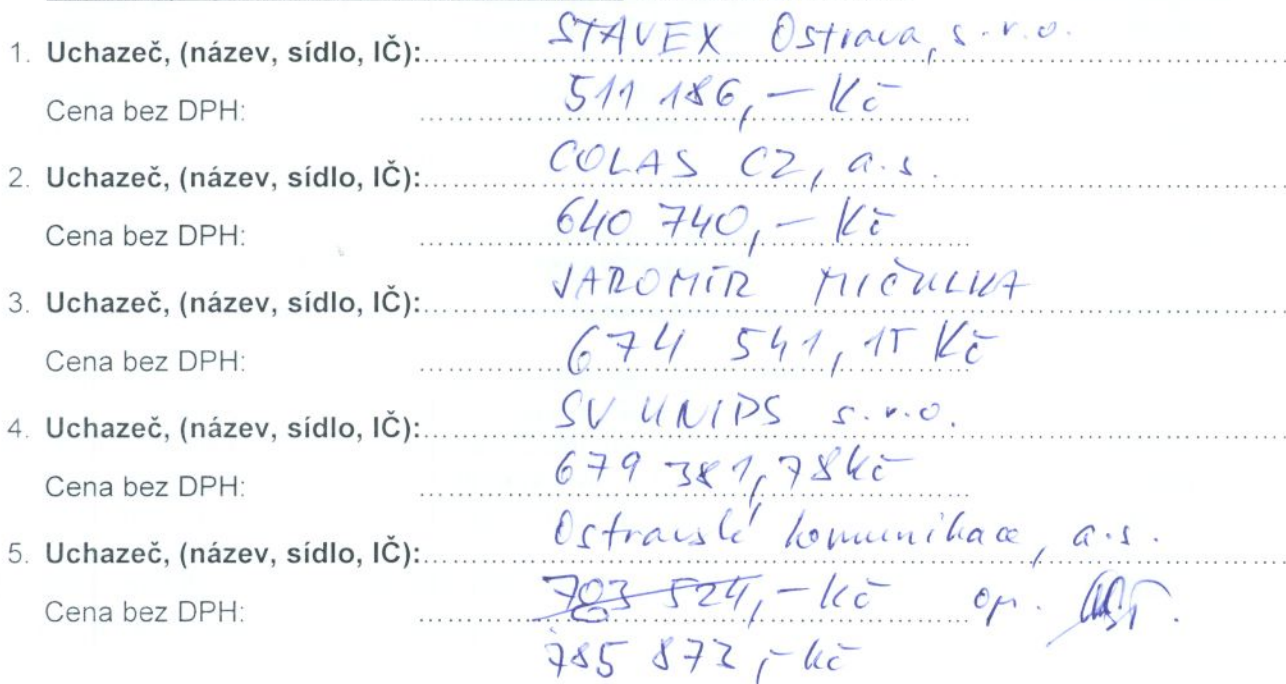 1. Uchazeč, (název, sídlo, IČ): STAVEX Ostrava, s.r.o.
Cena bez DPH: 511 186,– Kč
2. Uchazeč, (název, sídlo, IČ): COLAS CZ, a.s.
Cena bez DPH: 640 740,– Kč
3. Uchazeč, (název, sídlo, IČ): JAROMÍR MIČULKA
Cena bez DPH: 674 541,15 Kč
4. Uchazeč, (název, sídlo, IČ): SV UNIPS s.r.o.
Cena bez DPH: 679 381,78 Kč
5. Uchazeč, (název, sídlo, IČ): Ostravské komunikace, a.s.
Cena bez DPH: 703 524,– Kč op.
785 872,– Kč